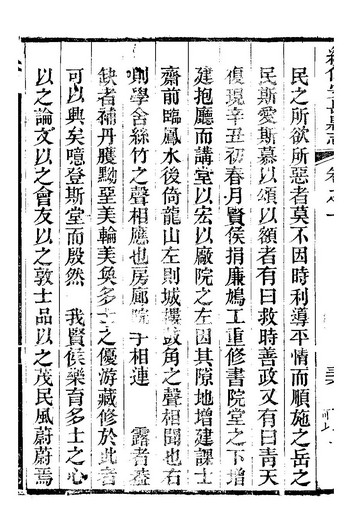 民之所欲所惡者莫不因時利導平情而順施之岳之
民斯愛斯慕以頌以額者有曰救時善政又有曰青天
復現辛丑初春月賢侯捐廉鳩工重修書院堂之下增
建抱廳而講堂以宏以廠院之左因其隙地增建課士
齋前臨鳳水後倚龍山左則城樓鼓角之聲相聞也右
則學舍絲竹之聲相應也房廊院子相連 露者葢
缺者補丹雘黝堊美輪美奐多士之優游藏修於此者
可以興矣噫登斯堂而殷然 我賢侯樂育多士之心
以之論文以之會友以之敦士品以之茂民風蔚蔚焉
卷之一